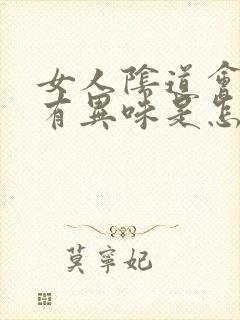 女人陰道會
有異味是怎
莫寧妃